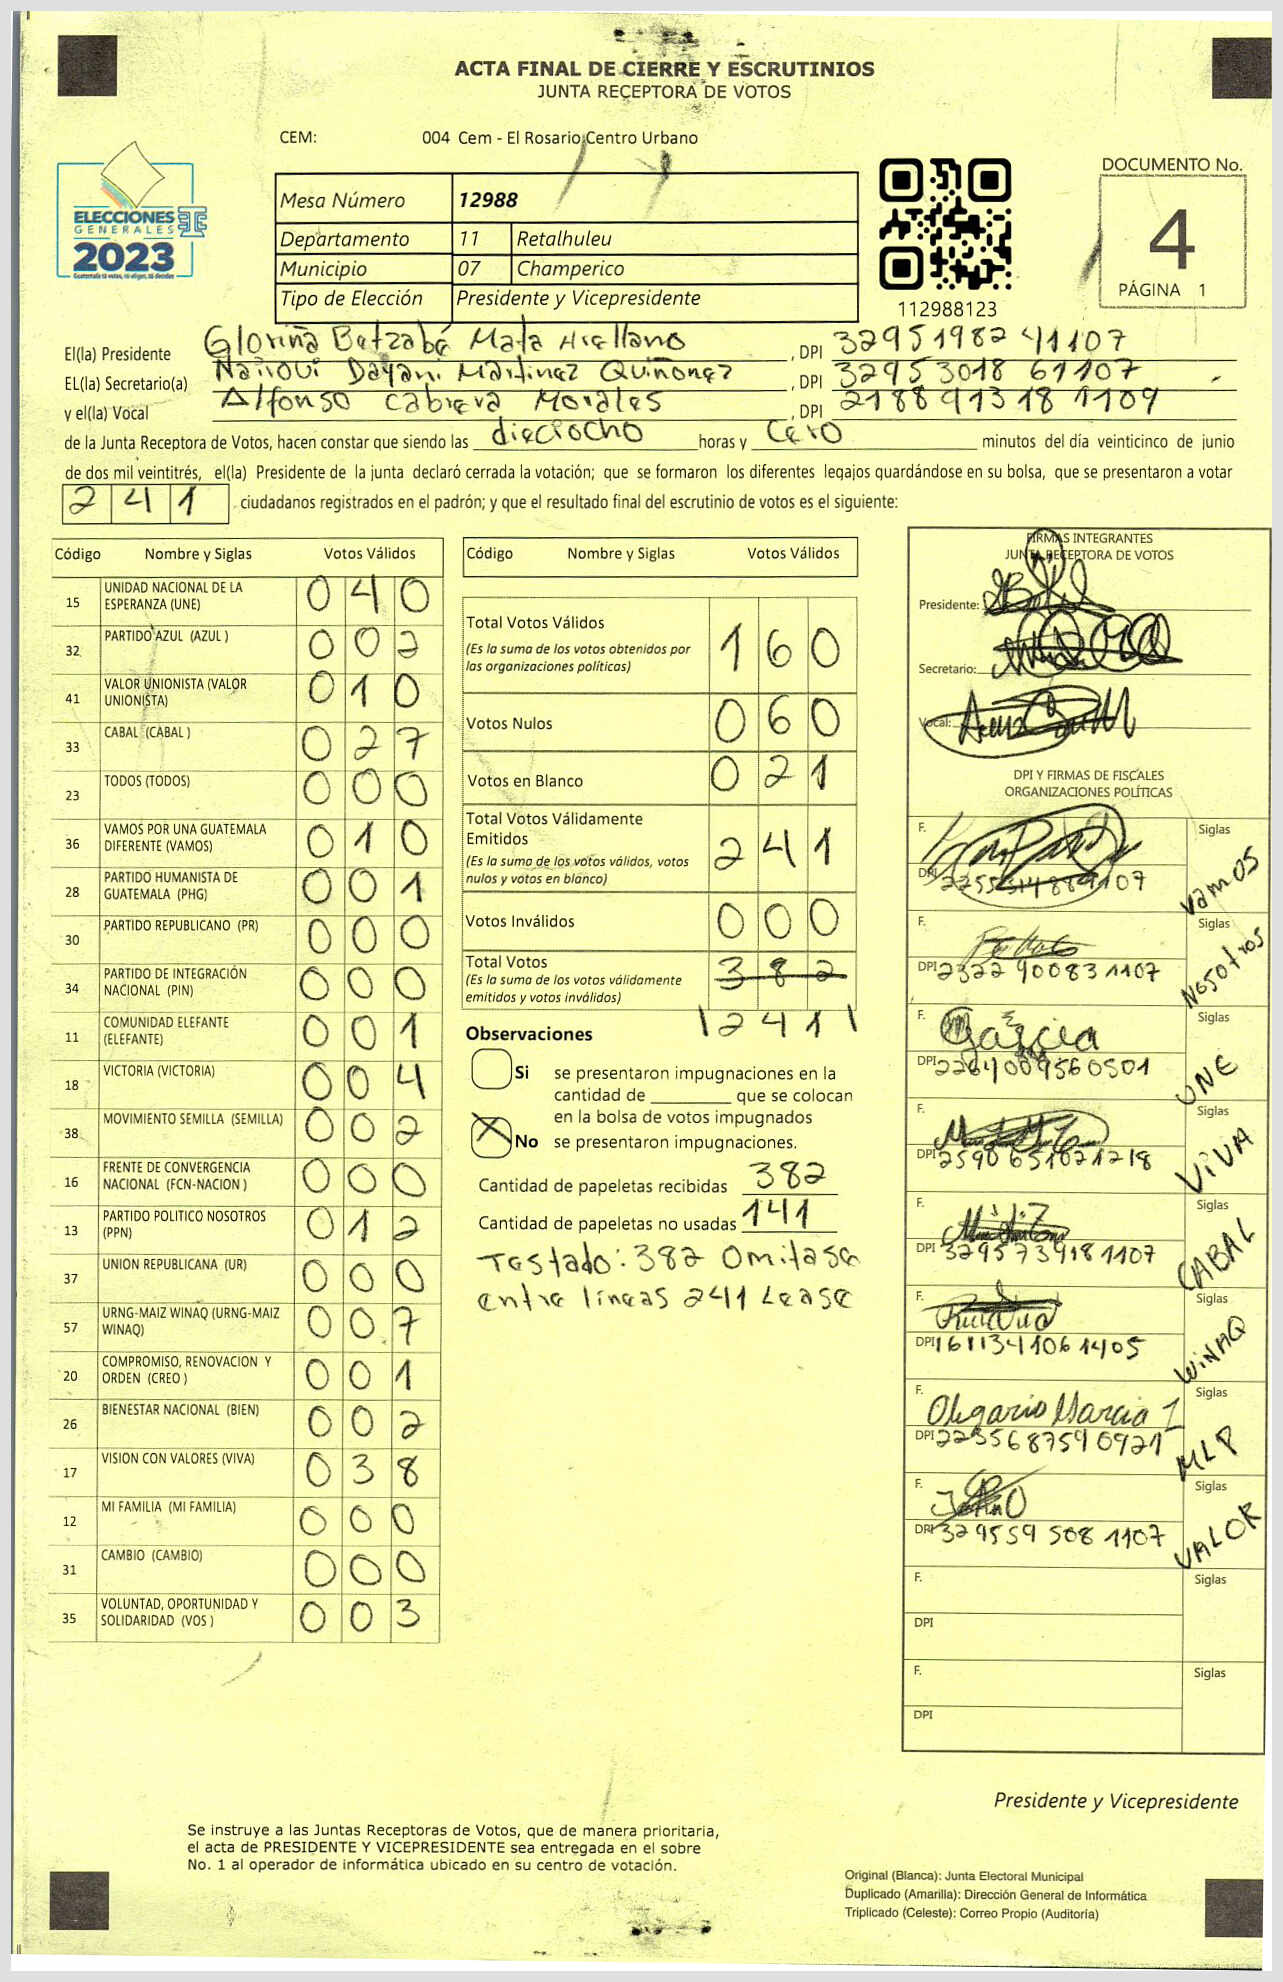 ACTA FINAL DE CIERRE Y ESCRUTINIOS
JUNTA RECEPTORA DE VOTOS
CEM: 004 Cem - El Rosario Centro Urbano
ELECCIONES
GENERALES
2023
Mesa Número 12988
Departamento 11 Retalhuleu
Municipio 07 Champerico
Tipo de Elección Presidente y Vicepresidente
112988123
DOCUMENTO No.
4
PÁGINA 1
El(la) Presidente Glorina Betzabé Mata Arellano, DPI 32951982 41107
EL(la) Secretario(a) Nairovi Dayani Martinez Quiñonez, DPI 32953018 61107
y el(la) Vocal Alfonso Cabrera Morales, DPI 218891318 1109
de la Junta Receptora de Votos, hacen constar que siendo las dieciocho horas y cero minutos del día veinticinco de junio
de dos mil veintitrés, el(la) Presidente de la junta declaró cerrada la votación; que se formaron los diferentes legajos quardándose en su bolsa, que se presentaron a votar
241 ciudadanos registrados en el padrón; y que el resultado final del escrutinio de votos es el siguiente:
Código Nombre y Siglas Votos Válidos
15 UNIDAD NACIONAL DE LA
ESPERANZA (UNE) 040
32 PARTIDO AZUL (AZUL ) 002
41 VALOR UNIONISTA (VALOR
UNIONISTA) 010
33 CABAL (CABAL ) 027
23 TODOS (TODOS) 000
36 VAMOS POR UNA GUATEMALA
DIFERENTE (VAMOS) 010
28 PARTIDO HUMANISTA DE
GUATEMALA (PHG) 001
30 PARTIDO REPUBLICANO (PR) 000
34 PARTIDO DE INTEGRACIÓN
NACIONAL (PIN) 000
11 COMUNIDAD ELEFANTE
(ELEFANTE) 001
18 VICTORIA (VICTORIA) 004
38 MOVIMIENTO SEMILLA (SEMILLA) 002
16 FRENTE DE CONVERGENCIA
NACIONAL (FCN-NACION ) 000
13 PARTIDO POLITICO NOSOTROS
(PPN) 012
37 UNION REPUBLICANA (UR) 000
57 URNG-MAIZ WINAQ (URNG-MAIZ
WINAQ) 007
20 COMPROMISO, RENOVACION Y
ORDEN (CREO ) 001
26 BIENESTAR NACIONAL (BIEN) 002
17 VISION CON VALORES (VIVA) 038
12 MI FAMILIA (MI FAMILIA) 000
31 CAMBIO (CAMBIO) 000
35 VOLUNTAD, OPORTUNIDAD Y
SOLIDARIDAD (VOS ) 003
Código Nombre y Siglas Votos Válidos
Total Votos Válidos 160
(Es la suma de los votos obtenidos por
las organizaciones políticas)
Votos Nulos 060
Votos en Blanco 021
Total Votos Válidamente
Emitidos 241
(Es la suma de los votos válidos, votos
nulos y votos en blanco)
Votos Inválidos 000
Total Votos 382
(Es la suma de los votos válidamente
emitidos y votos inválidos)
241
Observaciones
Si se presentaron impugnaciones en la
cantidad de ________ que se colocan
en la bolsa de votos impugnados
X No se presentaron impugnaciones.
Cantidad de papeletas recibidas 382
Cantidad de papeletas no usadas 141
Testado: 382 Omitase
entre líneas 241 Lease
FIRMAS INTEGRANTES
JUNTA RECEPTORA DE VOTOS
Presidente:
Secretario:
Vocal:
DPI Y FIRMAS DE FISCALES
ORGANIZACIONES POLÍTICAS
F. Siglas
DPI vamos
F. Siglas
DPI 2322 900831107 Nosotros
F. García Siglas
DPI 2264009560501 UNE
F. Siglas
DPI 2590651021218 VIVA
F. Siglas
DPI 3295739181107 CABAL
F. Siglas
DPI 1611341061405 WINAQ
F. Olegario Garcia Siglas
DPI 2235687590921 MLP
F. Siglas
DPI 329559 508 1107 VALOR
F. Siglas
DPI
F. Siglas
DPI
Presidente y Vicepresidente
Se instruye a las Juntas Receptoras de Votos, que de manera prioritaria,
el acta de PRESIDENTE Y VICEPRESIDENTE sea entregada en el sobre
No. 1 al operador de informática ubicado en su centro de votación.
Original (Blanca): Junta Electoral Municipal
Duplicado (Amarilla): Dirección General de Informática
Triplicado (Celeste): Correo Propio (Auditoría)